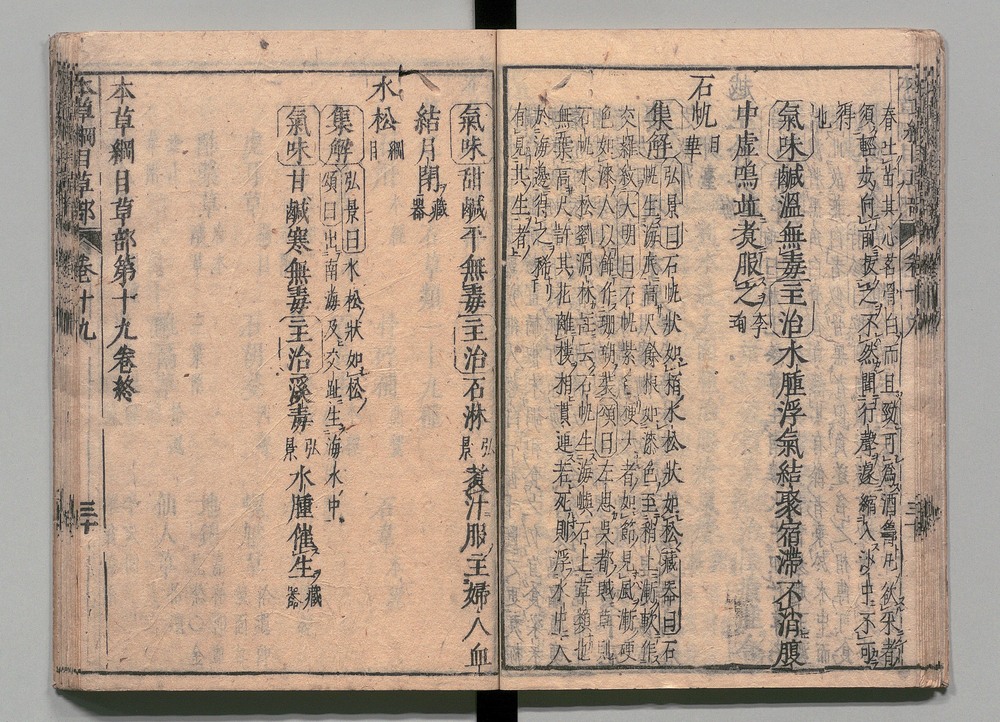 春吐苗其心若骨白而且勁可為酒籌凡欲采者
須輕步向前拔之不然聞行聲遽縮入沙中不可
得
也
氣味鹹溫無毒主治水腫浮氣結聚宿滯不消腹
中虛鳴並煮服之李珣
石帆日華
集解弘景曰石帆狀如柏水松狀如松藏器曰石
帆生海底高尺餘根如漆色至稍上漸軟作
交羅紋大明曰石帆紫色梗大者如筯見風漸硬
色如漆人以飾作珊瑚裝頌曰左思吳都賦草則
石帆水松劉淵林註云石帆生海嶼石上草類也
無葉高尺許其花離樓相貫連若死則浮水中人
於海邊得之稀
有見其生者
氣味甜鹹平無毒主治石淋弘景煮汁服主婦人血
結月閉藏器
水松綱目
集解弘景曰水松狀如松
頌曰出南海及交趾生海水中
氣味甘鹹寒無毒主治溪毒弘景水腫催生藏器
本草綱目草部第十九卷終
本草綱目草部 卷十九 三十